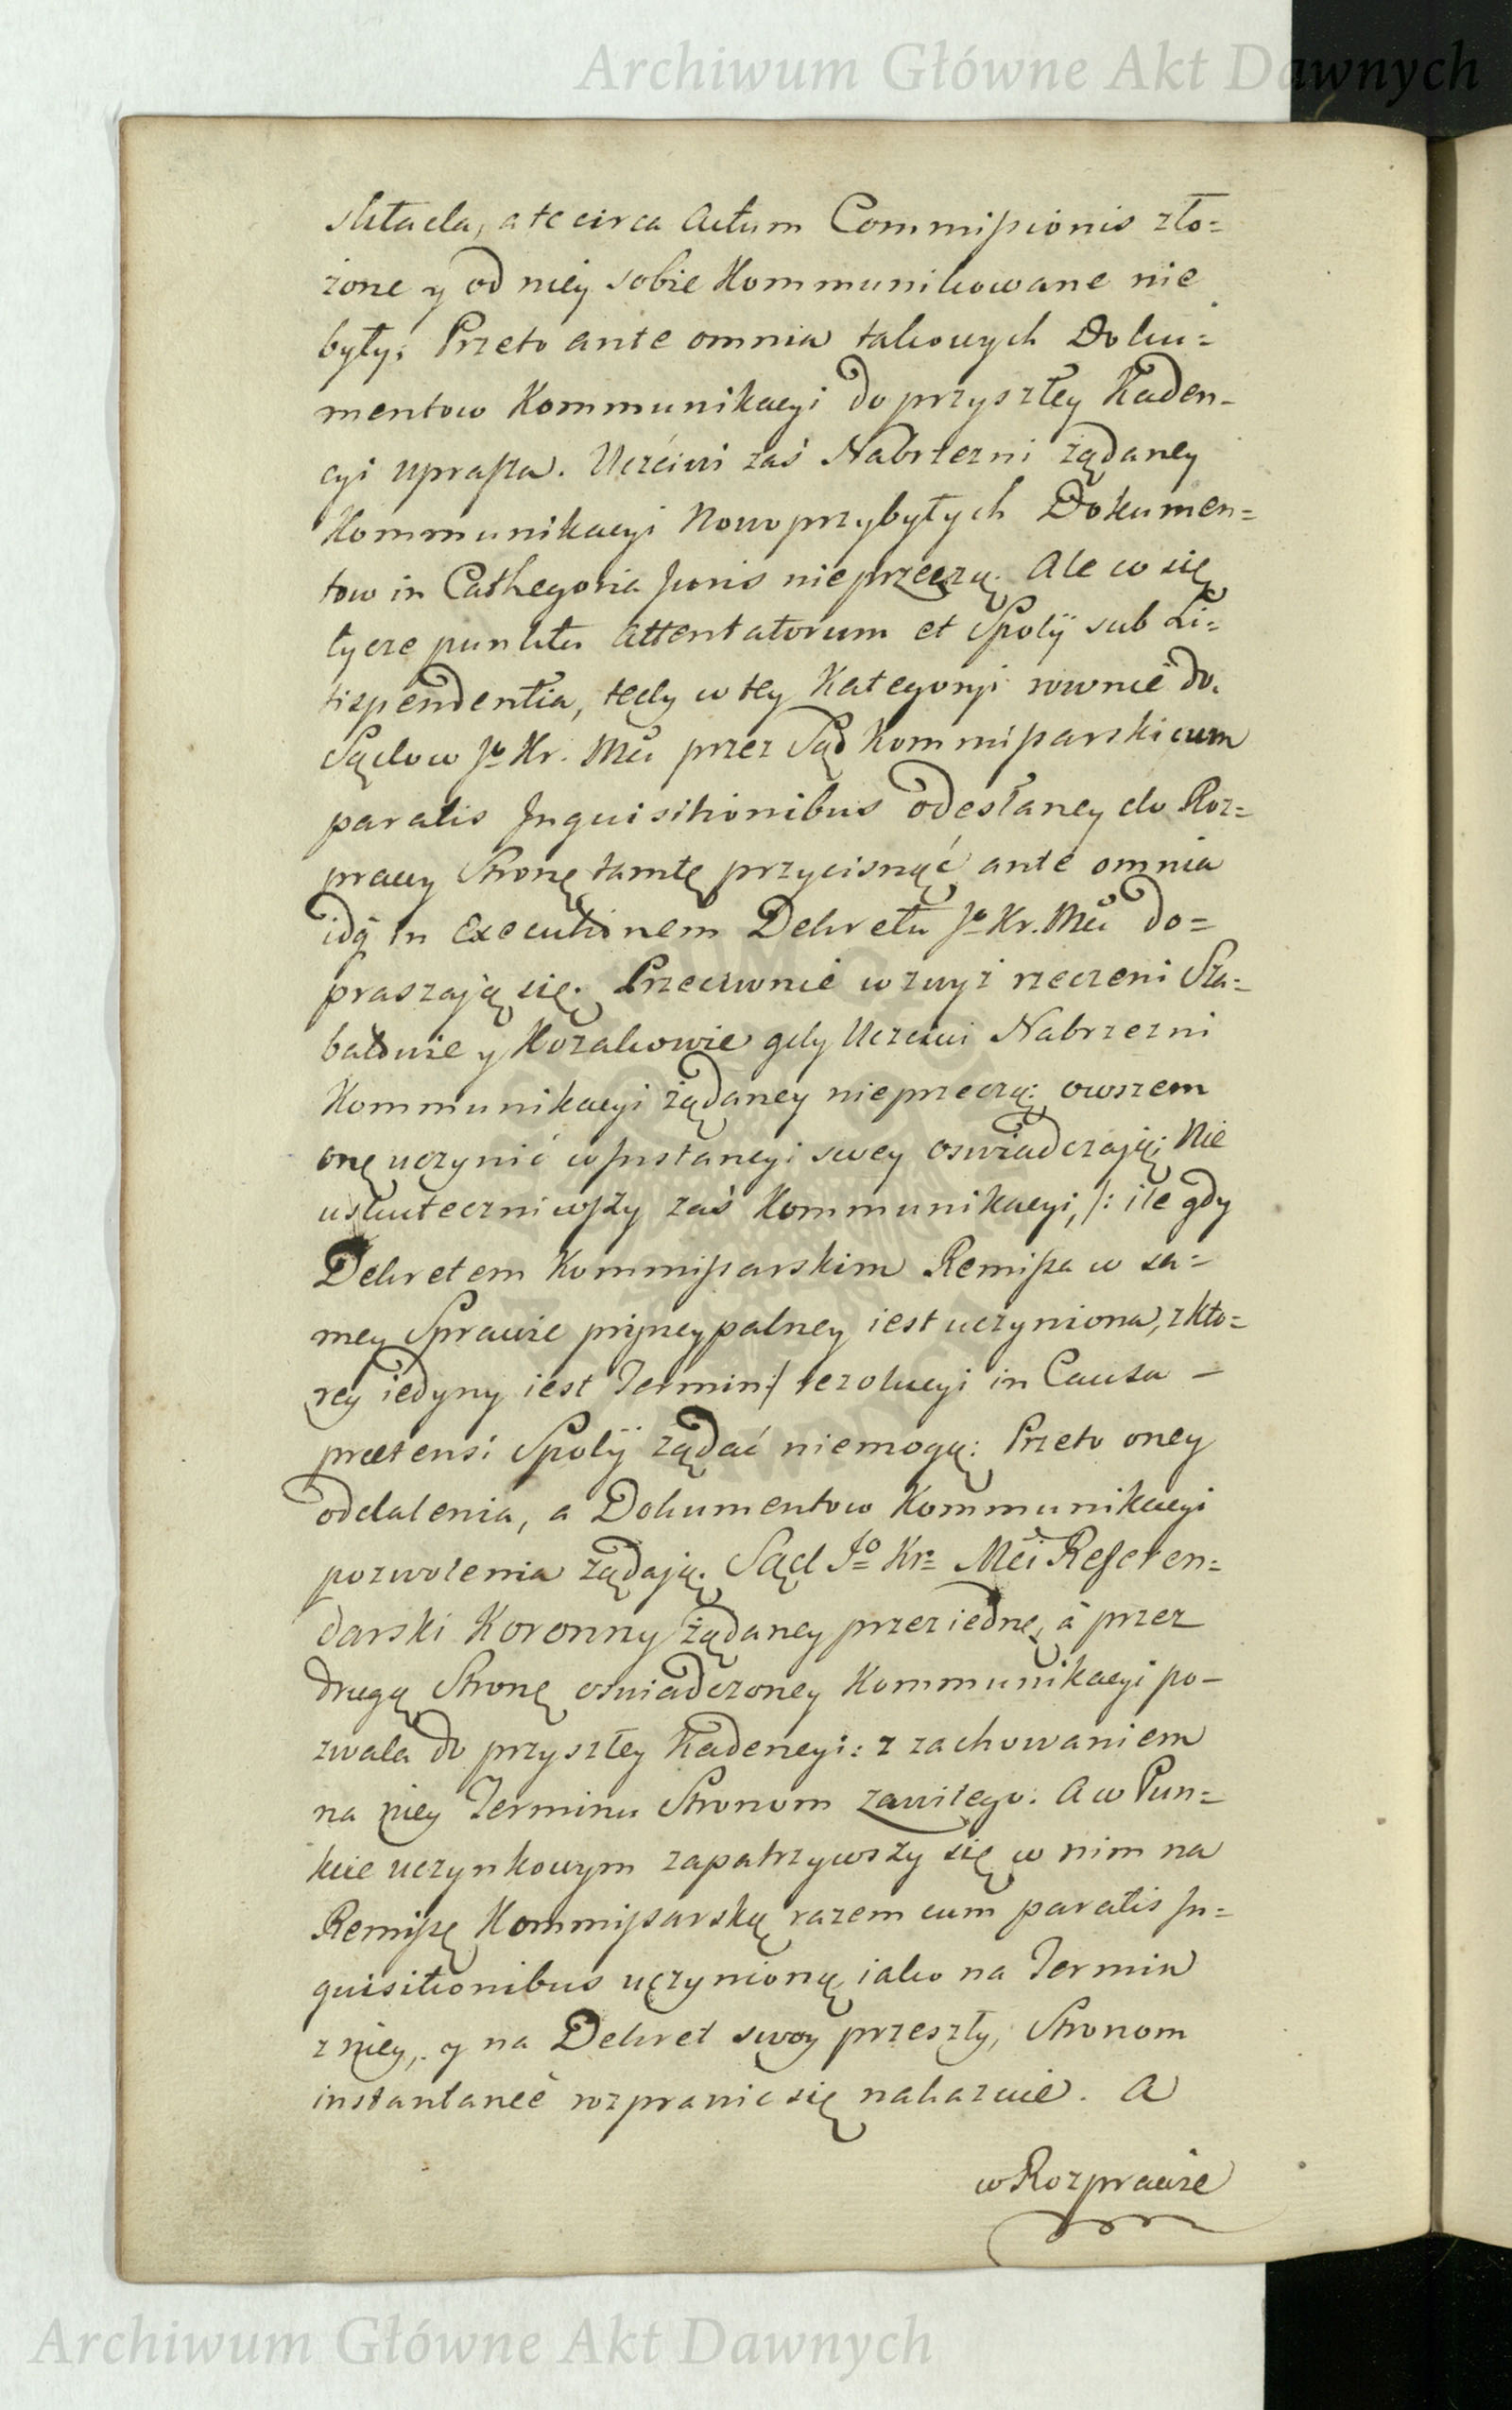 Archiwum Główne Akt Dawnych
składa, a te circa Actum Commissionis zło=
żone y od niey sobie Kommunikowane nie
były; Przeto ante omnia takowych Doku=
mentow Kommunikacyi do przyszłey Kaden=
cyi uprasza. Uczćiwi zaś Nabrzezni żądaney
Kommunikacyi Nowo przybyłych Dokumen=
tow in Cathegoria Juris nieprzeczą. Ale co się
tycze punktu attentatorum et Spolÿ sub Li=
tispendentia, tedy w tey Kategoryi rownie do
Sądow Jo Kr. Mći przez Sąd Kommissarski cum
paratis Inquisitionibus odesłaney do Roz=
prawy Stronę tamtę przycisnąć ante omnia
idą in Executionem Dekretu Jo Kr. Mći do=
praszają się. Przeciwnie wzwyż rzeczeni Sza=
batowie y Kozakowie gdy Uczciwi Nabrzezni
Kommunikacyi żądaney nieprzeczą; owszem
onę uczynić w Instancyi swey oswiadczają; Nie
uskuteczniwszy zaś Kommunikacyi, /: ile gdy
Dekretem Kommissarskim Remissa w sa=
mey Sprawie pryncypalney iest uczyniona, z kto=
rey iedyny iest Termin :/ rezolucyi in Causa –
prætensi Spolÿ żądać niemogą: Przeto oney
oddalenia, a Dokumentow Kommunikacyi
pozwolenia żądają. Sąd Jo Kr Mći Referen=
darski Koronny żądaney przez iednę, à przez
drugą Stronę oswiadczoney Kommunikacyi po=
zwala do przyszłey Kadencyi: z zachowaniem
na niey Terminu Stronom zawitego: A w Pun=
kcie uczynkowym zapatrzywszy się w nim na
Remissę Kommissarską razem cum paratis In=
quisitionibus uczynioną iako na Termin
z niey, y na Dekret swoy przeszły, Stronom
instantaneè rozprawić się nakazuie. A
w Rozprawie
Archiwum Główne Akt Dawnych